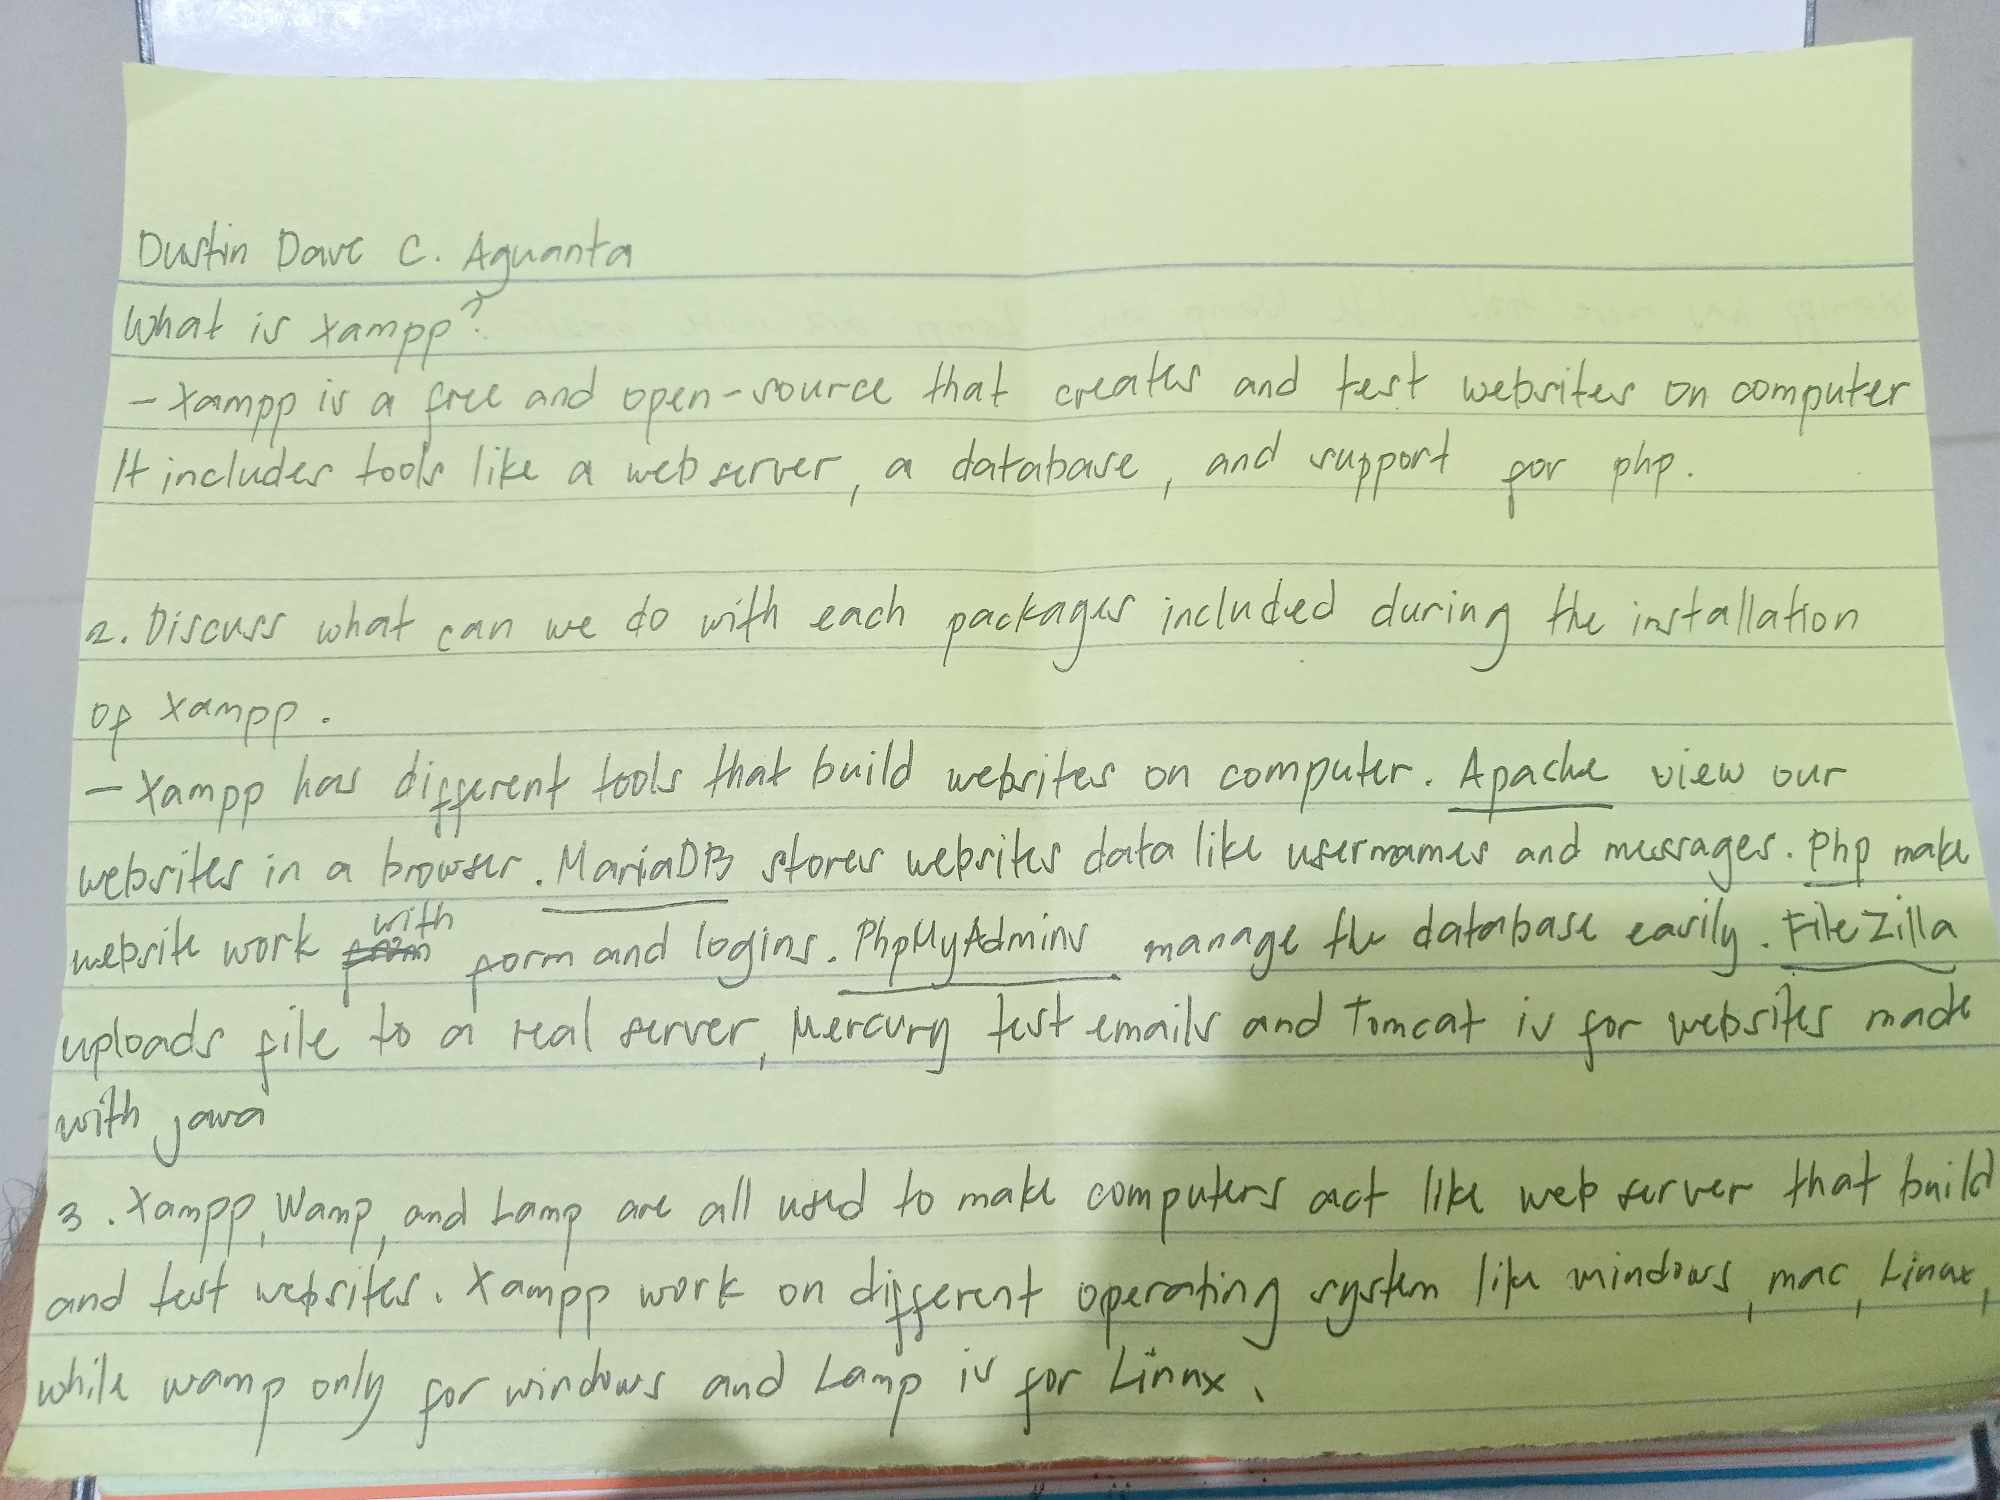 Dustin Dave C. Aguanta
What is Xampp?
- Xampp is a free and open-source that creates and test websites on computer
It includes tools like a web server, a database, and support for php.
2. Discuss what can we do with each packages included during the installation
of Xampp.
- Xampp has different tools that build websites on computer. Apache view our
websites in a browser. MariaDB stores websites data like usernames and messages. Php make
website work with form and logins. PhpMyAdmins manage the database easily. FileZilla
uploads file to a real server, Mercury test emails and Tomcat is for websites made
with java
3. Xampp, Wamp, and Lamp are all used to make computers act like web server that build
and test websites. Xampp work on different operating system like windows, mac, Linux,
while wamp only for windows and Lamp is for Linux.